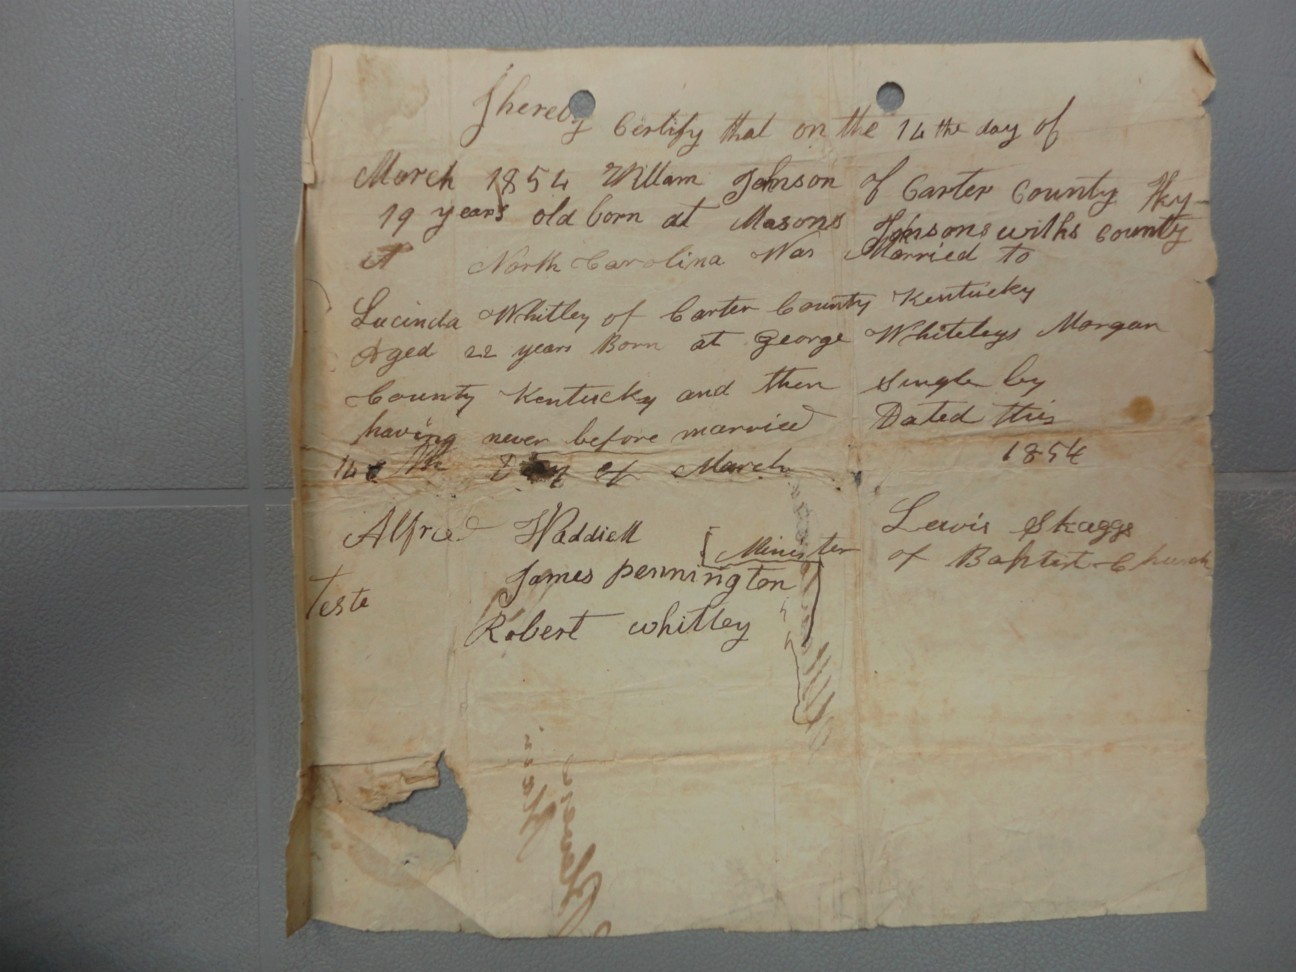 I hereby Certify that on the 14 the day of
March 1854 Willam Johnson of Carter County Ky
19 years old born at Masons Johnsons wilks County
North Carolina Was Married to
Lucinda Whitley of Carter County Kentucky
Aged 22 years Born at George Whiteleys Morgan
County Kentucky and then single by
having never before married Dated this
14 th Day of March 1854
Alfred Waddell [Minister Lewis Skaggs
James pennington of Baptist Church
Teste
Robert whitley